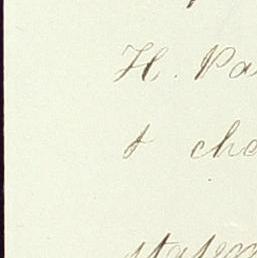 H. Pa
& cha
statem